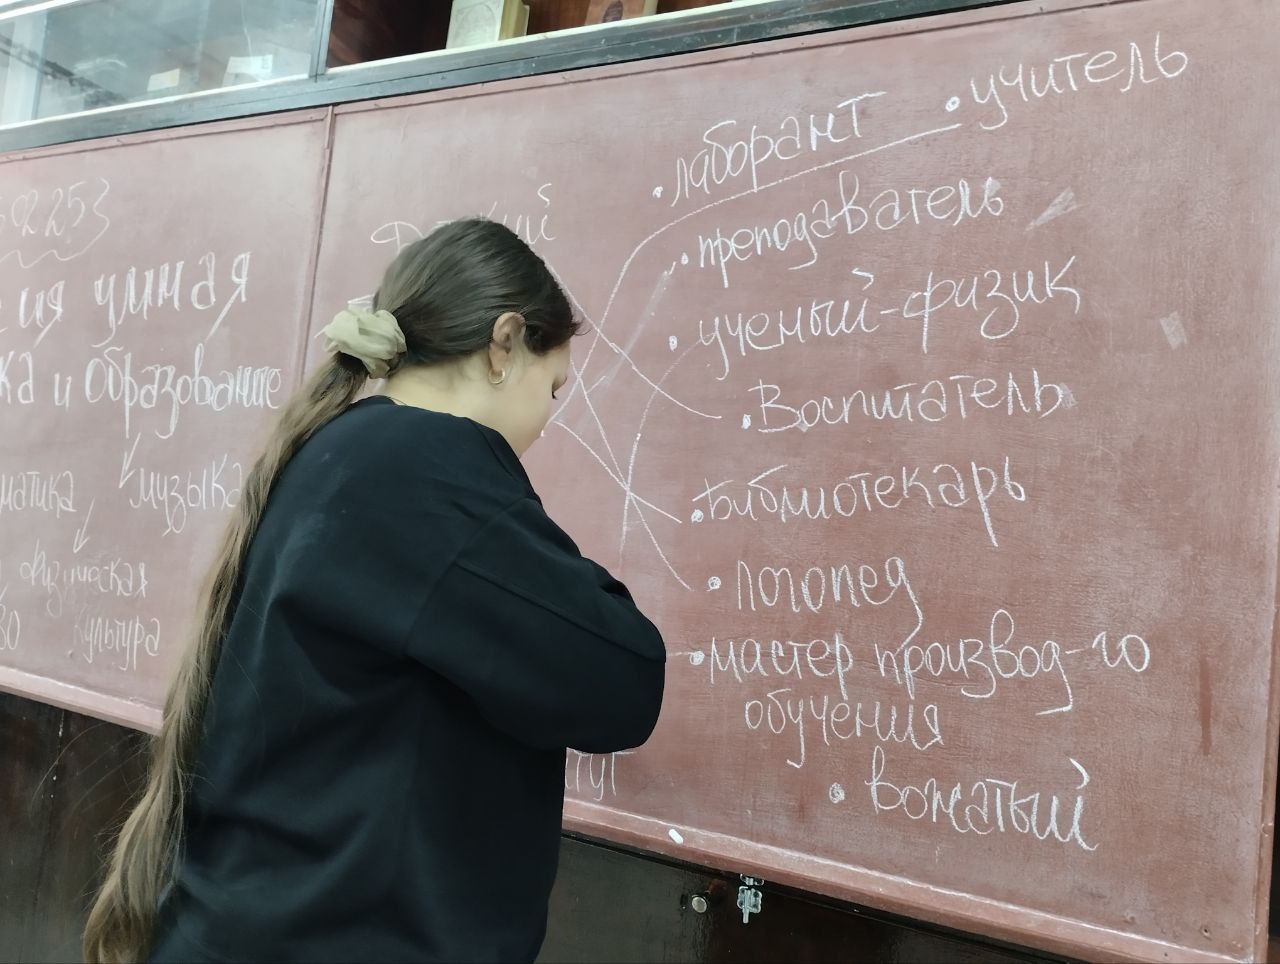 ия умная
ка и образование
матика
музыка
физическая
во
культура
лаборант
учитель
преподаватель
ученый-физик
Воспитатель
Библиотекарь
логопед
мастер производ-го
обучения
вожатый